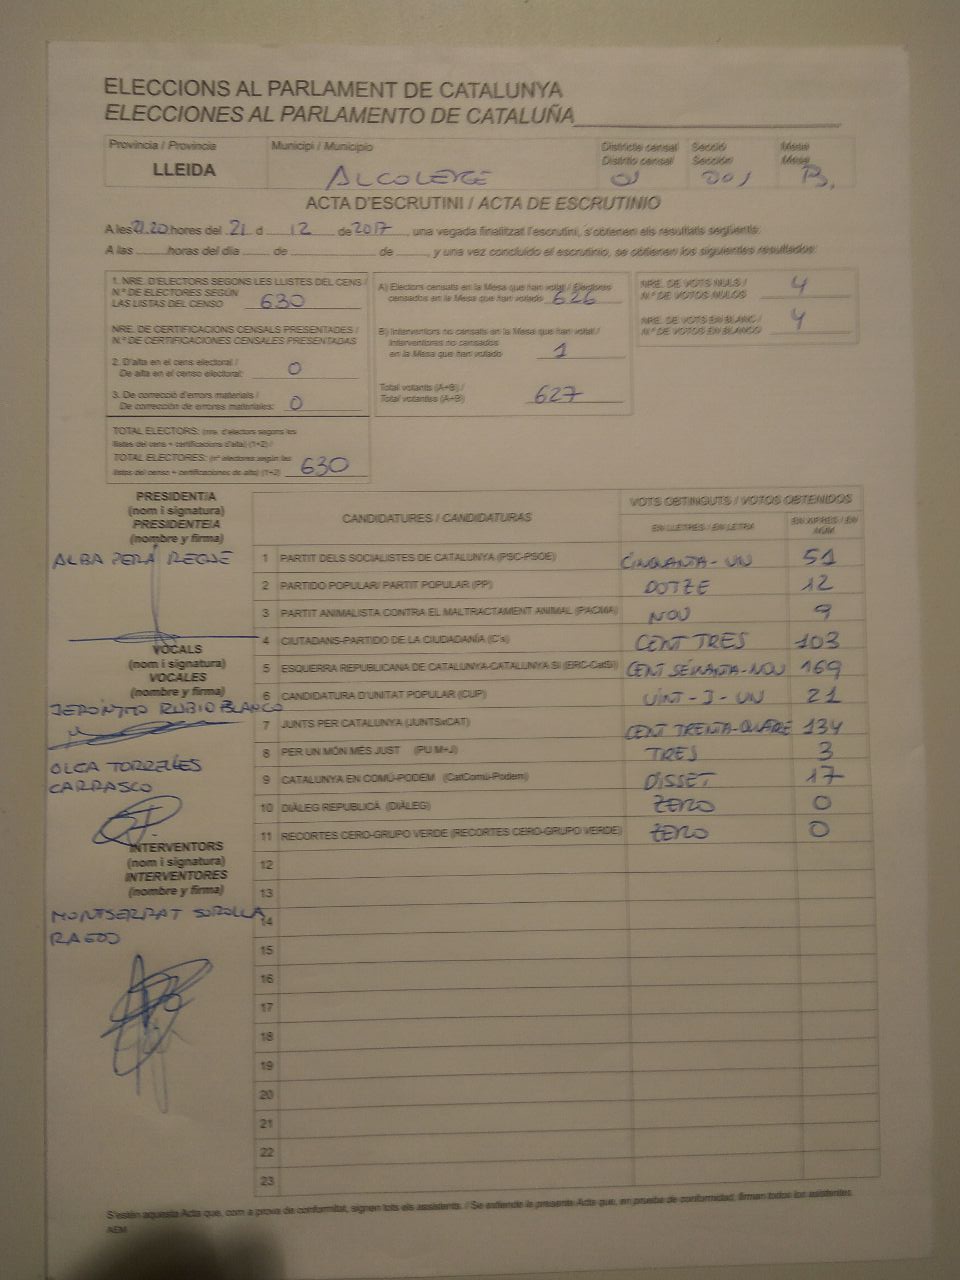 ELECCIONS AL PARLAMENT DE CATALUNYA
ELECCIONES AL PARLAMENTO DE CATALUÑA
Província / Provincia
LLEIDA
Municipi / Municipio
ALCOLETGE
Districte censal
Distrito censal
01
Secció
Sección
001
Mesa
Mesa
B
ACTA D'ESCRUTINI / ACTA DE ESCRUTINIO
A les 21.20 hores del 21 d 12 de 2017, una vegada finalitzat l'escrutini, s'obtenen els resultats següents:
A las horas del día de de , y una vez concluido el escrutinio, se obtienen los siguientes resultados:
1. NRE. D'ELECTORS SEGONS LES LLISTES DEL CENS /
N.º DE ELECTORES SEGÚN
LAS LISTAS DEL CENSO 630
NRE. DE CERTIFICACIONS CENSALS PRESENTADES /
N.º DE CERTIFICACIONES CENSALES PRESENTADAS
2. D'alta en el cens electoral /
De alta en el censo electoral: 0
3. De correcció d'errors materials /
De corrección de errores materiales: 0
TOTAL ELECTORS: (nre. d'electors segons les
llistes del cens + certificacions d'alta) (1+2) /
TOTAL ELECTORES: (nº electores según las
listas del censo + certificaciones de alta) (1+2) 630
A) Electors censats en la Mesa que han votat / Electores
censados en la Mesa que han votado 626
B) Interventors no censats en la Mesa que han votat /
Interventores no censados
en la Mesa que han votado 1
Total votants (A+B) /
Total votantes (A+B) 627
NRE. DE VOTS NULS /
N.º DE VOTOS NULOS 4
NRE. DE VOTS EN BLANC /
N.º DE VOTOS EN BLANCO 4
PRESIDENT/A
(nom i signatura)
PRESIDENTE/A
(nombre y firma)
ALBA PERA
VOCALS
(nom i signatura)
VOCALES
(nombre y firma)
RUBIO BLANCO
OLGA TORRELLES
CARRASCO
INTERVENTORS
(nom i signatura)
INTERVENTORES
(nombre y firma)
MONTSERRAT SOROLLA
CANDIDATURES / CANDIDATURAS
VOTS OBTINGUTS / VOTOS OBTENIDOS
EN LLETRES / EN LETRA
EN XIFRES / EN NÚM
1 PARTIT DELS SOCIALISTES DE CATALUNYA (PSC-PSOE) CINQUANTA-UN 51
2 PARTIDO POPULAR/ PARTIT POPULAR (PP) DOTZE 12
3 PARTIT ANIMALISTA CONTRA EL MALTRACTAMENT ANIMAL (PACMA) NOU 9
4 CIUTADANS-PARTIDO DE LA CIUDADANÍA (C's) CENT TRES 103
5 ESQUERRA REPUBLICANA DE CATALUNYA-CATALUNYA SÍ (ERC-CatSí) CENT SEIXANTA-NOU 169
6 CANDIDATURA D'UNITAT POPULAR (CUP) VINT-I-UN 21
7 JUNTS PER CATALUNYA (JUNTSxCAT) CENT TRENTA-QUATRE 134
8 PER UN MÓN MÉS JUST (PUM+J) TRES 3
9 CATALUNYA EN COMÚ-PODEM (CatComú-Podem) DISSET 17
10 DIÀLEG REPUBLICÀ (DIÀLEG) ZERO 0
11 RECORTES CERO-GRUPO VERDE (RECORTES CERO-GRUPO VERDE) ZERO 0
12
13
14
15
16
17
18
19
20
21
22
23
S'estén aquesta Acta que, com a prova de conformitat, signen tots els assistents. / Se extiende la presente Acta que, en prueba de conformidad, firman todos los asistentes
AEM